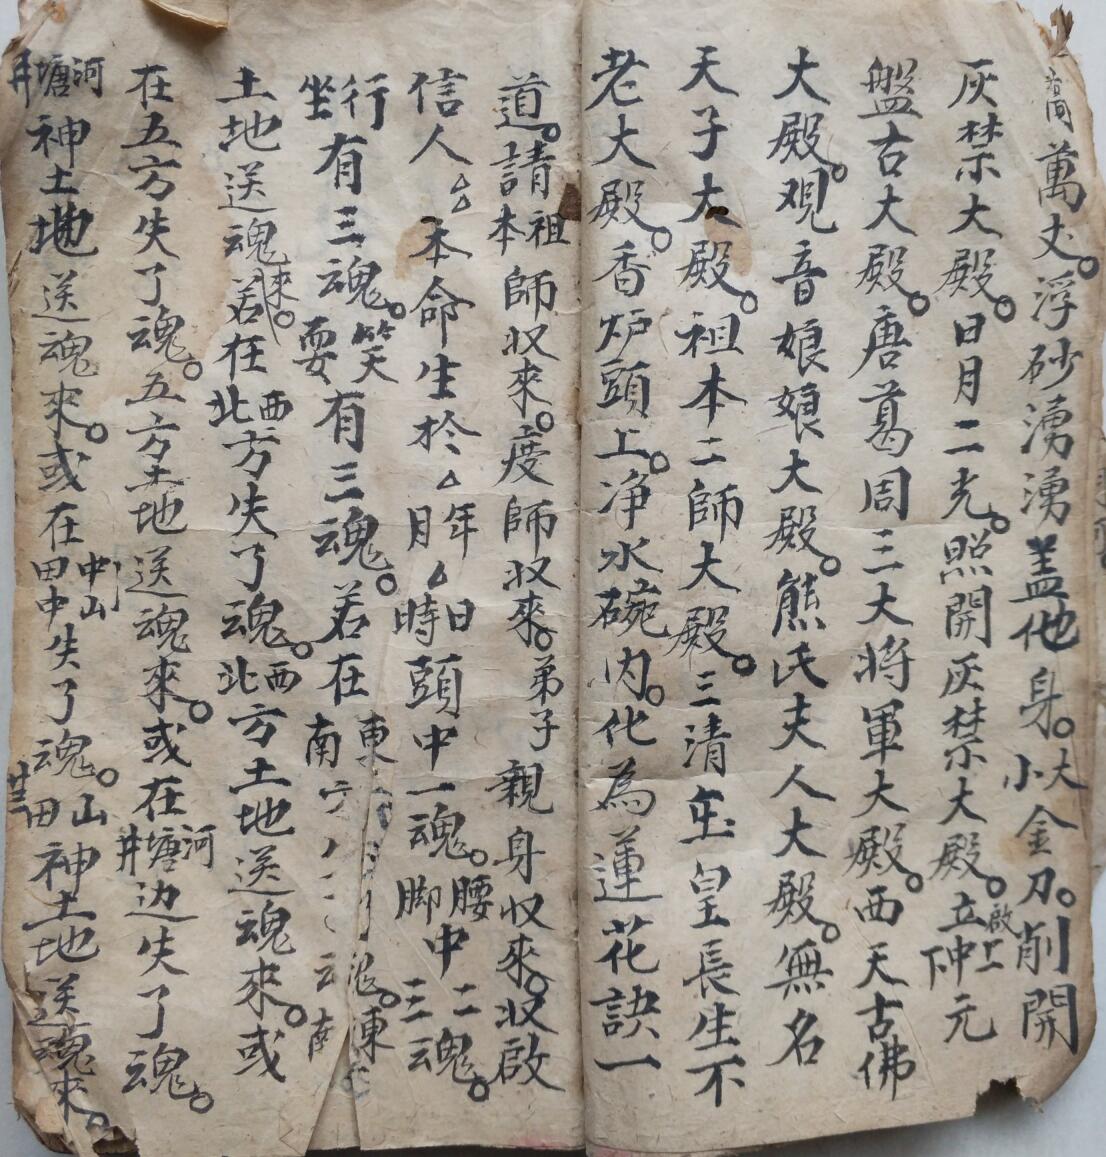 萬丈。浮砂湧湧盖他身。大小金刀。削開
灰禁大殿。日月二光。照開灰禁大殿。立啟上中下元
盤古大殿。唐葛周三大將軍大殿。西天古佛
大殿。观音娘娘大殿。熊氏夫人大殿。無名
天子大殿。祖本二師大殿。三清玉皇長生不
老大殿。香炉頭上。净水碗内。化為蓮花訣一
道。請祖本師收來。度師收來。弟子親身收來。收啟
信人△本命生於△年月△日時頭中一魂。腰脚中二三魂。
行坐有三魂。笑耍有三魂。若在東南方魂。東南
土地送魂來。若在西北方失了魂。西北方土地送魂來。或
在五方失了魂。五方土地送魂來。或在河塘井边失了魂。
河塘井神土地送魂來。或在山中田中失了魂。山田神土地送魂來。